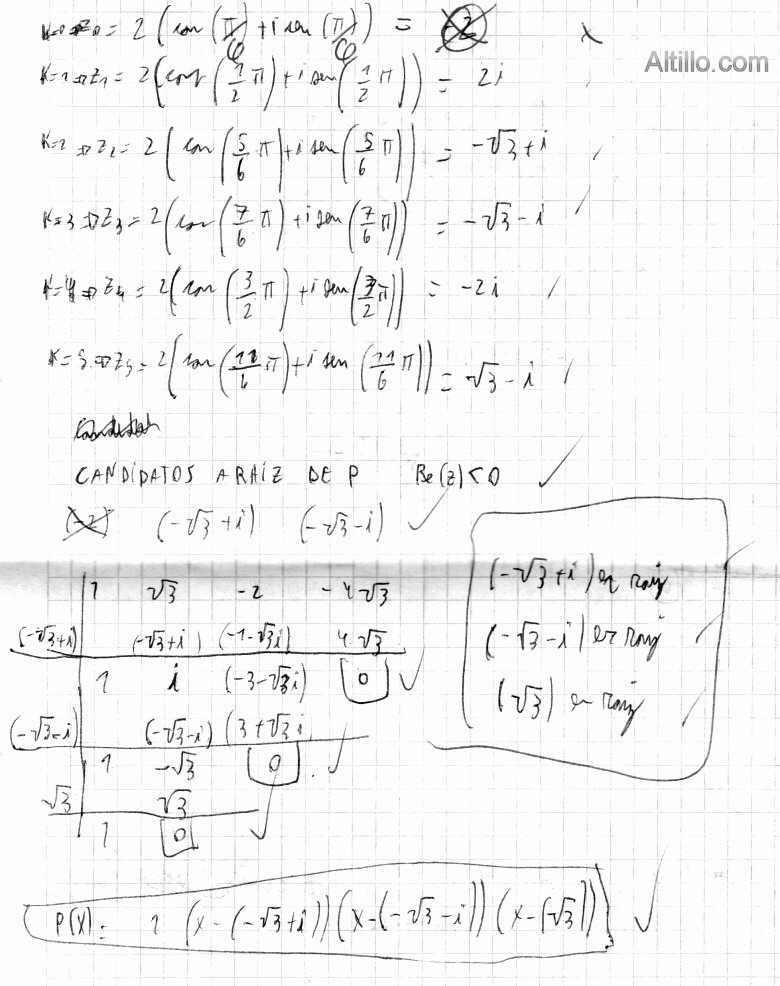 K=0 ⇒ Z₀ = 2 (cos (π/6) + i sen (π/6)) =
Altillo.com
K=1 ⇒ Z₁ = 2 (cos (1/2 π) + i sen (1/2 π)) = 2i
K=2 ⇒ Z₂ = 2 (cos (5/6 π) + i sen (5/6 π)) = -√3 + i
K=3 ⇒ Z₃ = 2 (cos (7/6 π) + i sen (7/6 π)) = -√3 - i
K=4 ⇒ Z₄ = 2 (cos (3/2 π) + i sen (3/2 π)) = -2i
K=5 ⇒ Z₅ = 2 (cos (11/6 π) + i sen (11/6 π)) = √3 - i
CANDIDATOS A RAIZ DE P Re(z) < 0
(-2) (-√3+i) (-√3-i)
1 √3 -2 -4√3
(-√3+i) (-√3+i) (-1-√3i) 4√3
1 i (-3-√3i) 0
(-√3-i) (-√3-i) (3+√3i
1 -√3 0
√3 √3
1 0
(-√3+i) es raiz
(-√3-i) es raiz
(√3) es raiz
P(X) = 1 (x-(-√3+i)) (x-(-√3-i)) (x-(√3))